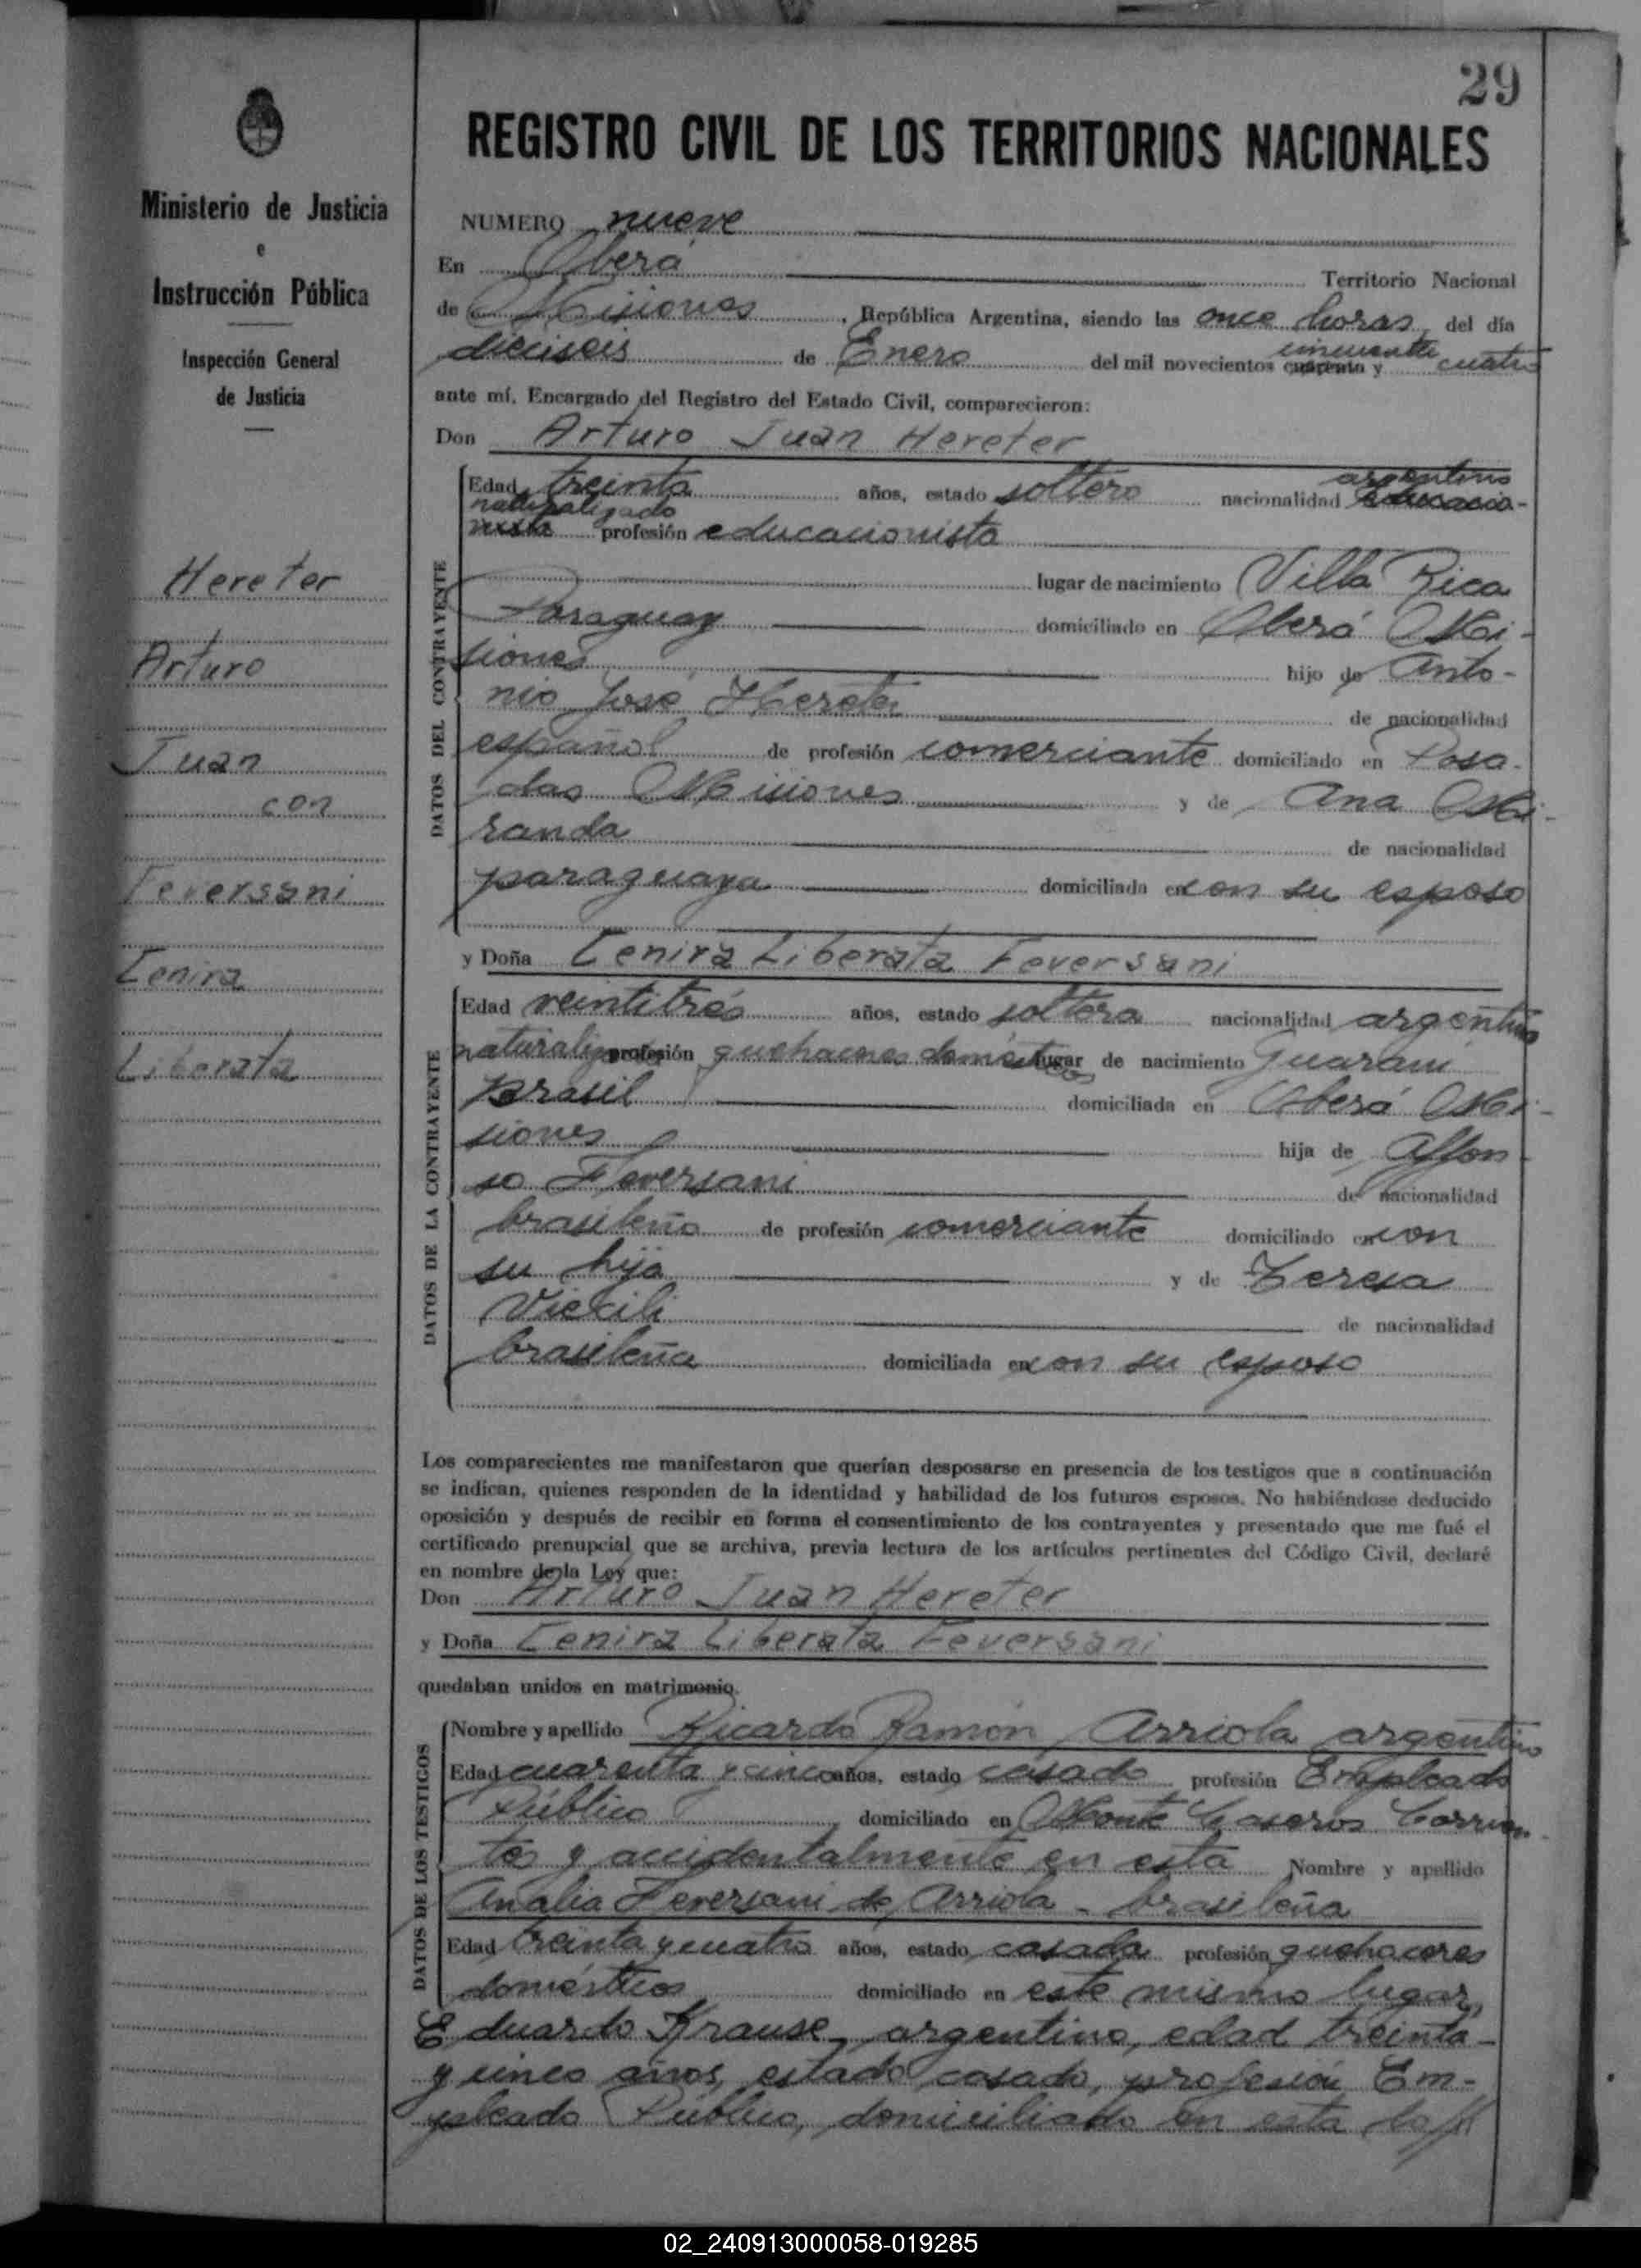 29
REGISTRO CIVIL DE LOS TERRITORIOS NACIONALES
Ministerio de Justicia
e
Instrucción Pública
Inspección General
de Justicia
Hereter
Arturo
Juan
con
Feversani
Cenira
Liberata
NUMERO nueve
En Oberá Territorio Nacional
de Misiones, República Argentina, siendo las once horas, del día
dieciseis de Enero del mil novecientos cuarenta y cincuenta cuatro
ante mí, Encargado del Registro del Estado Civil, comparecieron:
Don Arturo Juan Hereter
DATOS DEL CONTRAYENTE
Edad treinta años, estado soltero nacionalidad argentino educacio-
naturalizado nista profesión educacionista
lugar de nacimiento Villa Rica
Paraguay domiciliado en Oberá Mi-
siones hijo de Anto-
nio José Hereter de nacionalidad
español de profesión comerciante domiciliado en Posa-
das Misiones y de Ana Mi-
randa de nacionalidad
paraguaya domiciliada en con su esposo
y Doña Cenira Liberata Feversani
DATOS DE LA CONTRAYENTE
Edad veintitrés años, estado soltera nacionalidad argentina
naturaliz profesión quehaceres domésticos lugar de nacimiento Guaraní
Brasil domiciliada en Oberá Mi-
siones hija de Affon-
so Feversani de nacionalidad
brasileño de profesión comerciante domiciliado en con
su hija y de Teresa
de nacionalidad
brasileña domiciliada en con su esposo
Los comparecientes me manifestaron que querían desposarse en presencia de los testigos que a continuación
se indican, quienes responden de la identidad y habilidad de los futuros esposos. No habiéndose deducido
oposición y después de recibir en forma el consentimiento de los contrayentes y presentado que me fué el
certificado prenupcial que se archiva, previa lectura de los artículos pertinentes del Código Civil, declaré
en nombre de la Ley que:
Don Arturo Juan Hereter
y Doña Cenira Liberata Feversani
quedaban unidos en matrimonio.
DATOS DE LOS TESTIGOS
Nombre y apellido Ricardo Ramón Arriola argentino
Edad cuarenta y cinco años, estado casado profesión Empleado
Público domiciliado en Monte Caseros Corrien-
tes y accidentalmente en esta Nombre y apellido
Analia Feversani de Arriola - brasileña
Edad treinta y cuatro años, estado casada profesión quehaceres
domésticos domiciliado en este mismo lugar,
Eduardo Krause, argentino, edad treinta
y cinco años, estado casado, profesión Em-
pleado Público, domiciliado en esta
02_240913000058-019285